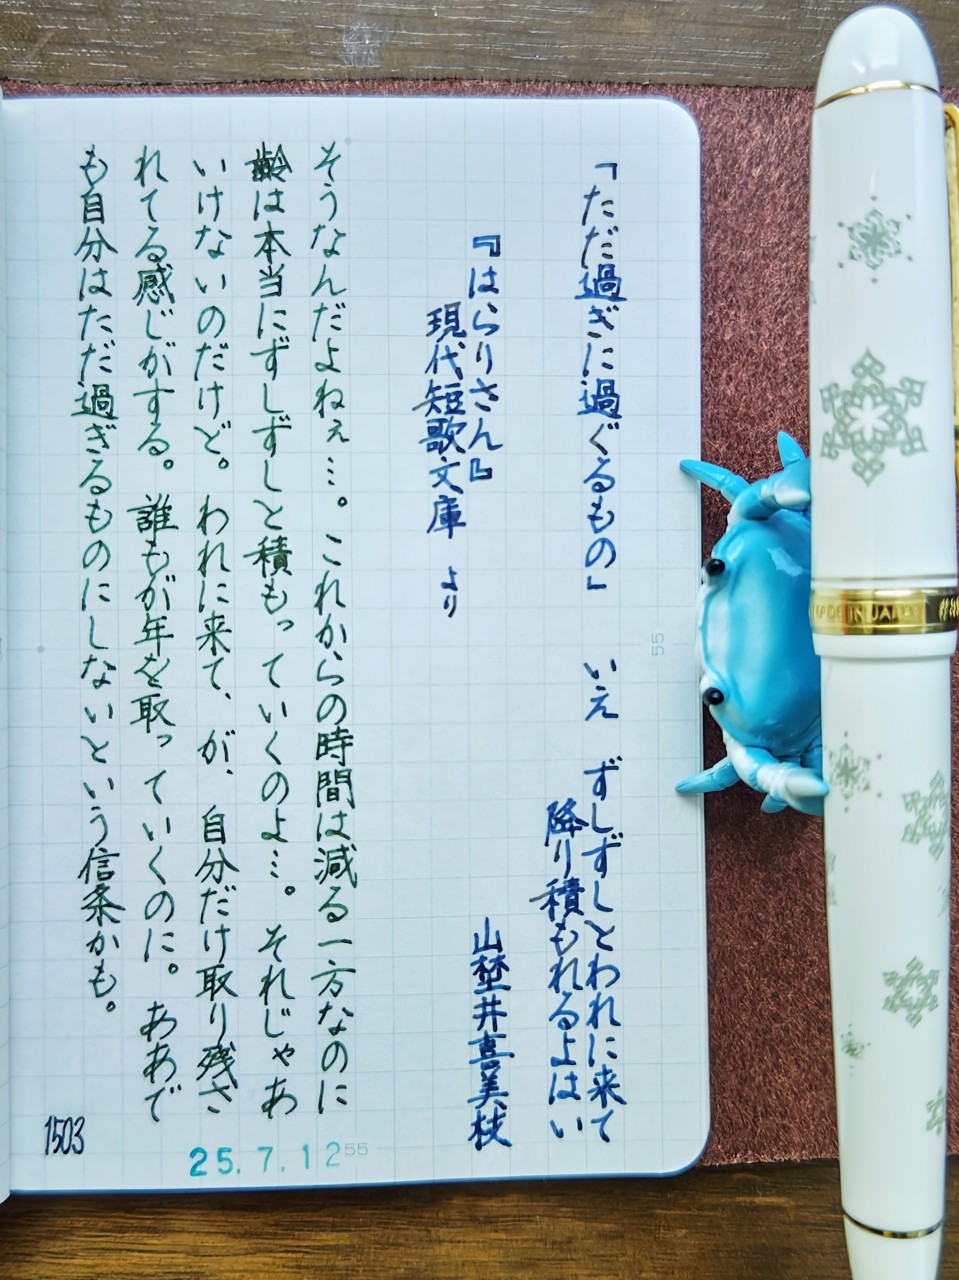 「ただ過ぎに過ぐるもの」　いえ　ずしずしとわれに来て
降り積もれるよはい
『はらりさん』　山埜井喜美枝
現代短歌文庫　より
そうなんだよねぇ…。これからの時間は減る一方なのに
齢は本当にずしずしと積もっていくのよ…。それじゃあ
いけないのだけど。われに来て、が、自分だけ取り残さ
れてる感じがする。誰もが年を取っていくのに。ああで
も自分はただ過ぎるものにしないという信条かも。
1503
25.7.12
55
55
MADE IN JAPAN